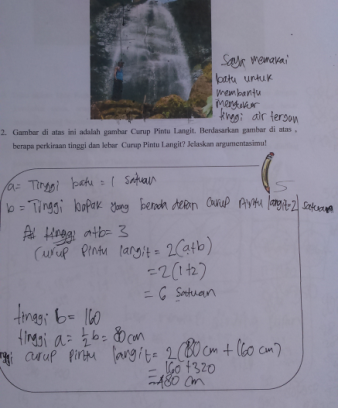 Saya memakai
batu untuk
membantu
mengukur
tinggi air terjun
2. Gambar di atas ini adalah gambar Curup Pintu Langit. Berdasarkan gambar di atas ,
berapa perkiraan tinggi dan lebar Curup Pintu Langit? Jelaskan argumentasimu!
a = Tinggi batu = 1 satuan
b = Tinggi bapak yang berada depan Curup Pintu langit = 2 satuan
a+b = 3
Curup Pintu langit = 2(a+b)
= 2(1+2)
= 6 satuan
tinggi b = 160
tinggi a = ½ b = 80 cm
curup pintu langit = 2(80 cm + 160 cm)
= 160 + 320
= 480 cm